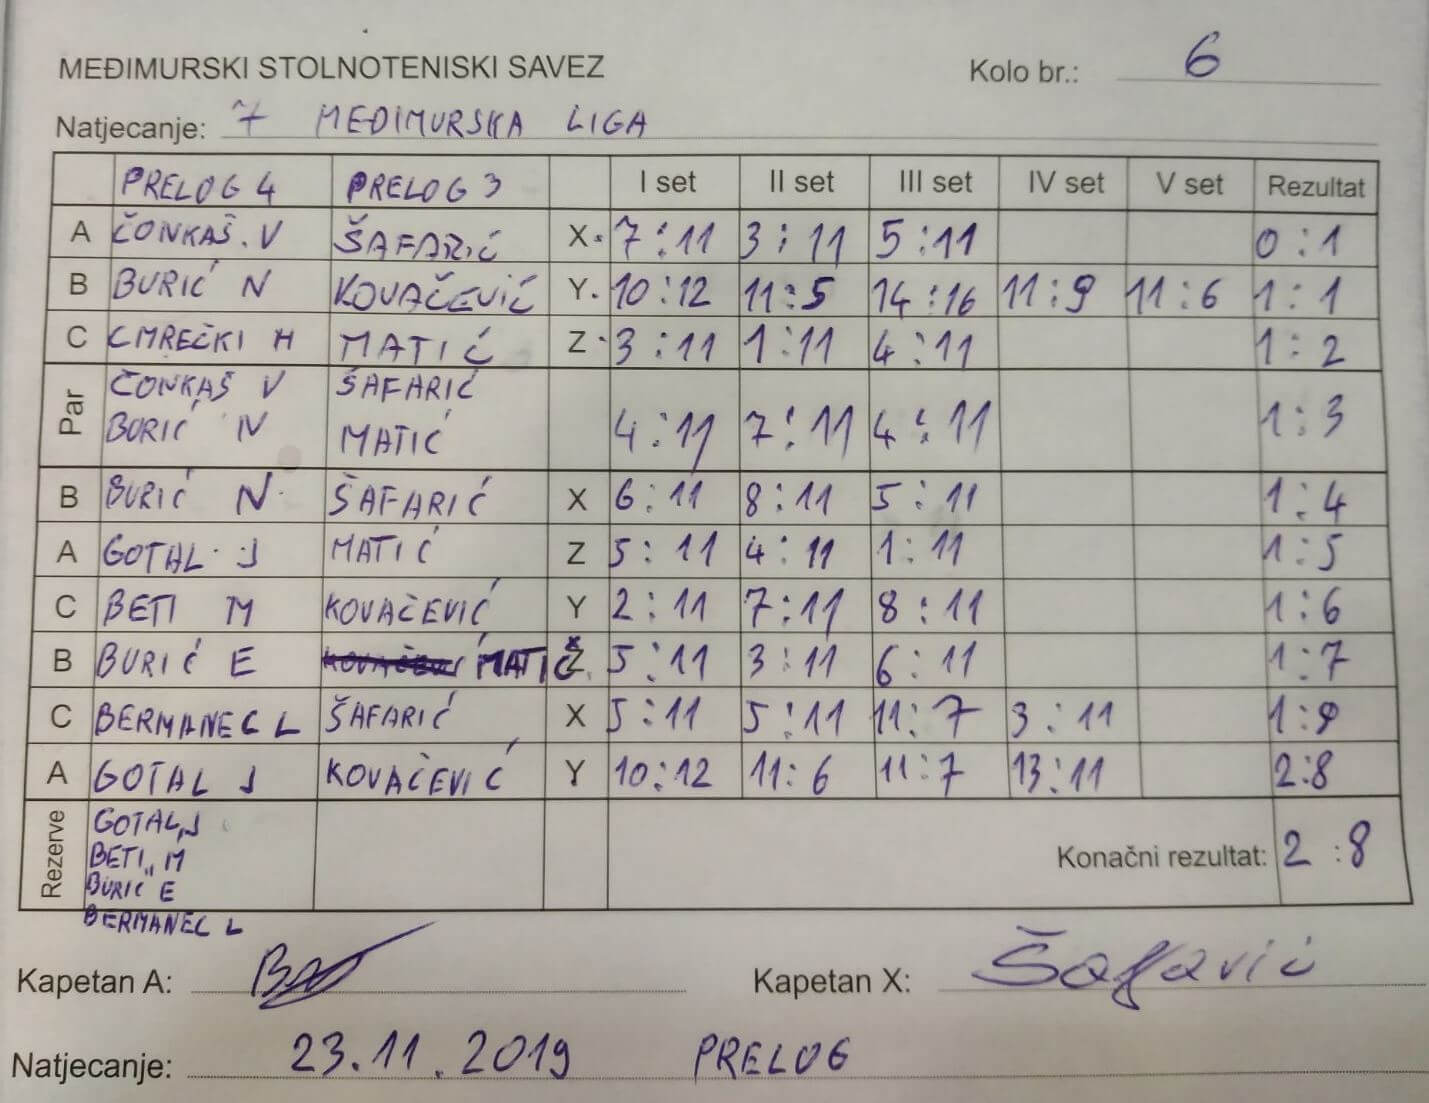 MEĐIMURSKI STOLNOTENISKI SAVEZ Kolo br.: 6
Natjecanje: 7 MEĐIMURSKA LIGA
PRELOG 4 PRELOG 3 I set II set III set IV set V set Rezultat
A ČONKAŠ. V ŠAFARIĆ X. 7:11 3:11 5:11 0:1
B BURIĆ N KOVAČEVIĆ Y. 10:12 11:5 14:16 11:9 11:6 1:1
C CMREČKI M MATIĆ Z. 3:11 1:11 4:11 1:2
Par ČONKAŠ V ŠAFARIĆ
BURIĆ N MATIĆ 4:11 7:11 4:11 1:3
B BURIĆ N. ŠAFARIĆ X 6:11 8:11 5:11 1:4
A GOTAL J MATIĆ Z 5:11 4:11 1:11 1:5
C BETI M KOVAČEVIĆ Y 2:11 7:11 8:11 1:6
B BURIĆ E MATIĆ Z 5:11 3:11 6:11 1:7
C BERMANEC L ŠAFARIĆ X 5:11 5:11 11:7 3:11 1:8
A GOTAL J KOVAČEVIĆ Y 10:12 11:6 11:7 13:11 2:8
Rezerve GOTAL, J
BETI, M
BURIĆ E
BERMANEC L
Konačni rezultat: 2:8
Kapetan A: Kapetan X: Šafarić
Natjecanje: 23.11.2019 PRELOG